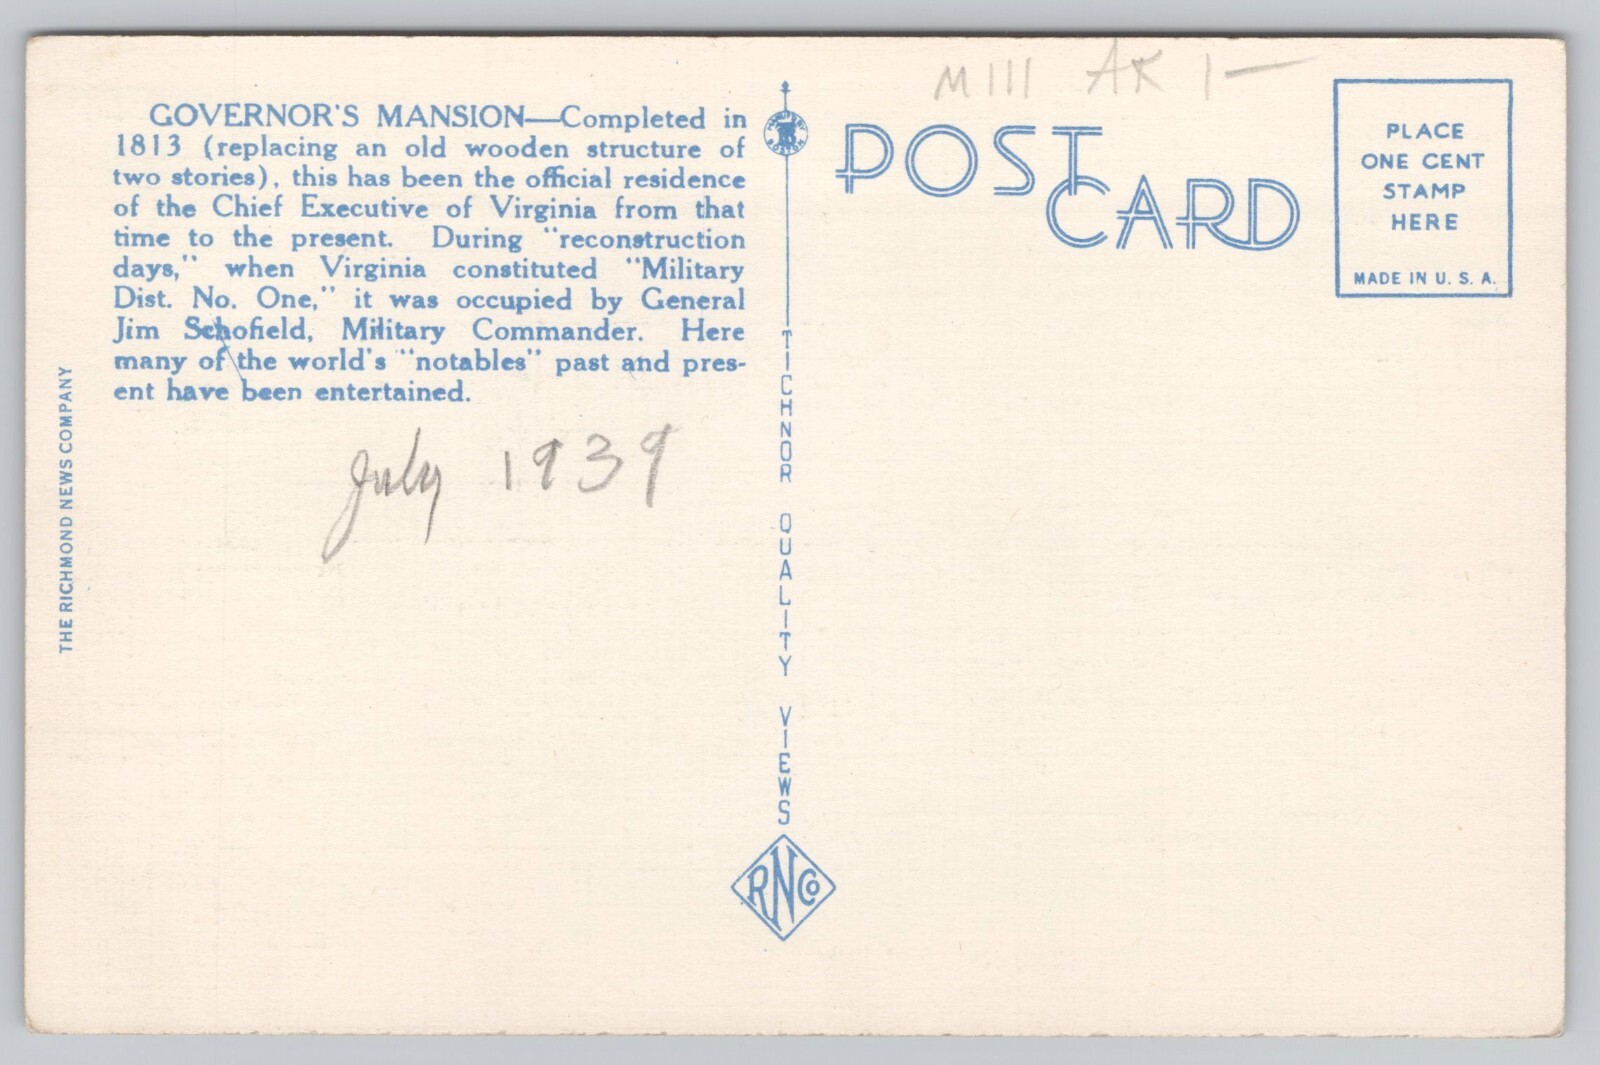 M111 AK 1—
GOVERNOR'S MANSION—Completed in
1813 (replacing an old wooden structure of
two stories), this has been the official residence
of the Chief Executive of Virginia from that
time to the present. During "reconstruction
days," when Virginia constituted "Military
Dist. No. One," it was occupied by General
Jim Schofield, Military Commander. Here
many of the world's "notables" past and pres-
ent have been entertained.
July 1939
THE RICHMOND NEWS COMPANY
TICHNOR QUALITY VIEWS
RNCo
POST
CARD
PLACE
ONE CENT
STAMP
HERE
MADE IN U. S. A.